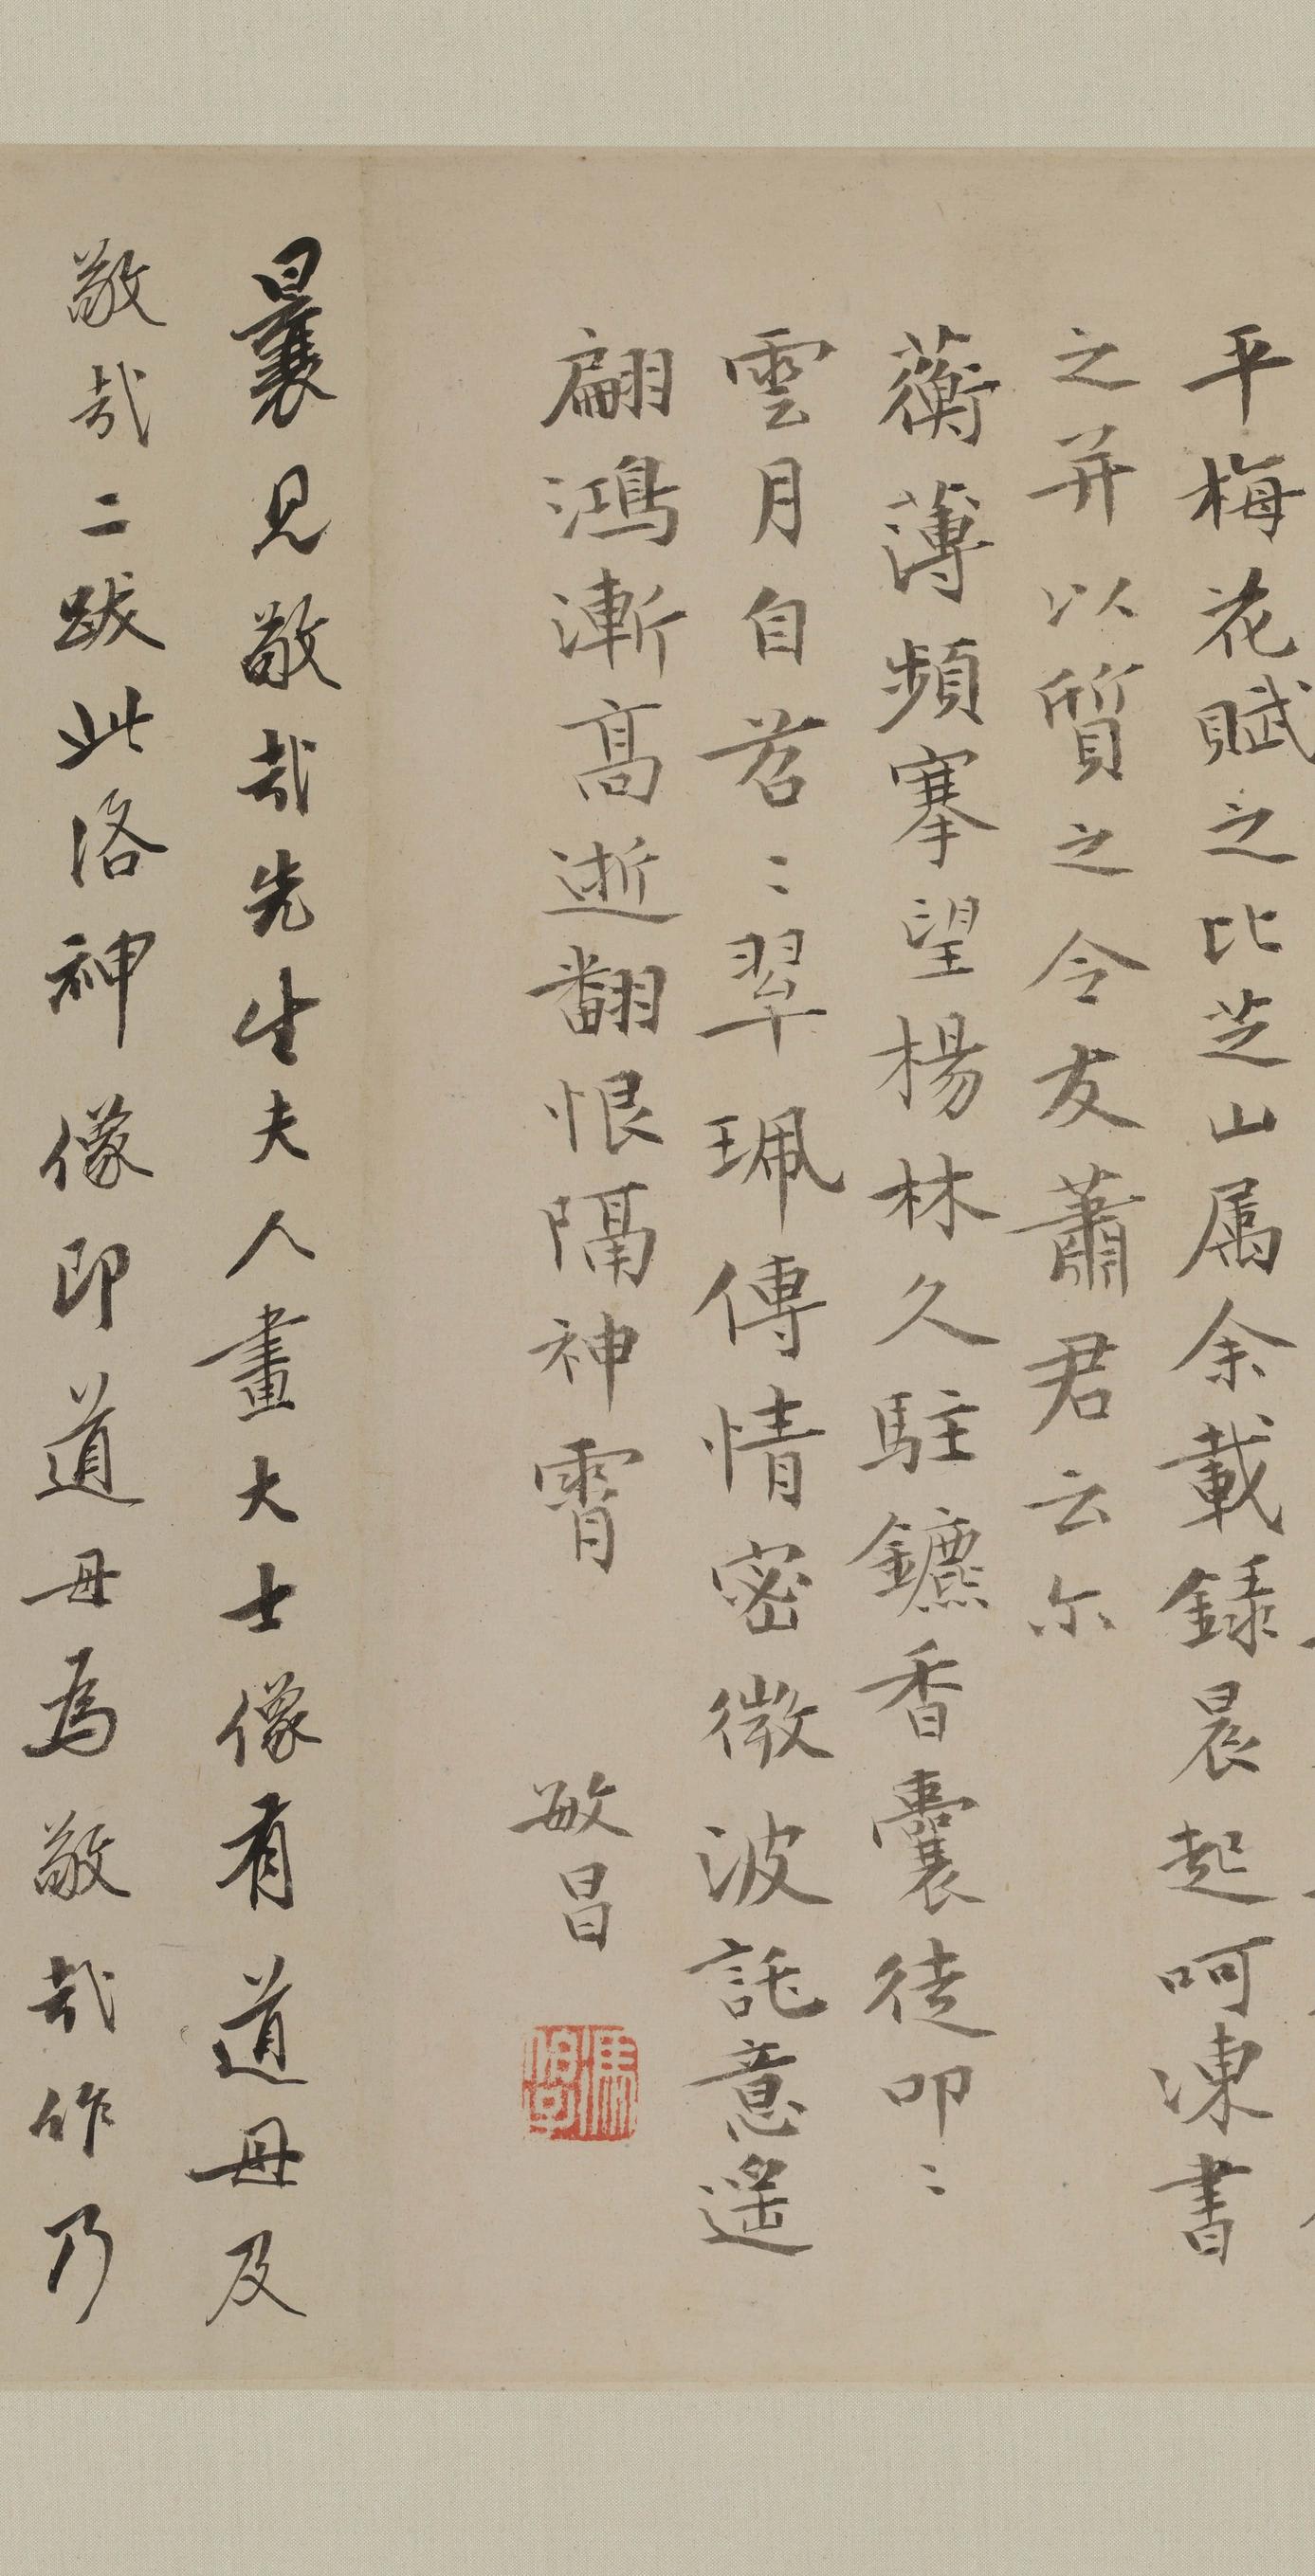 平梅花賦之比芝山属余載錄晨起呵凍書
之并以質之令友蕭君云尔
蘅薄頻搴望楊林久駐鑣香囊徒叩〻
雲月自苕〻翠珮傳情密微波託意遙
翩鴻漸高逝翻恨隔神霄
敏昌
曩見敬哉先生夫人畫大士像有道母及
敬哉二跋此洛神像即道母為敬哉作乃